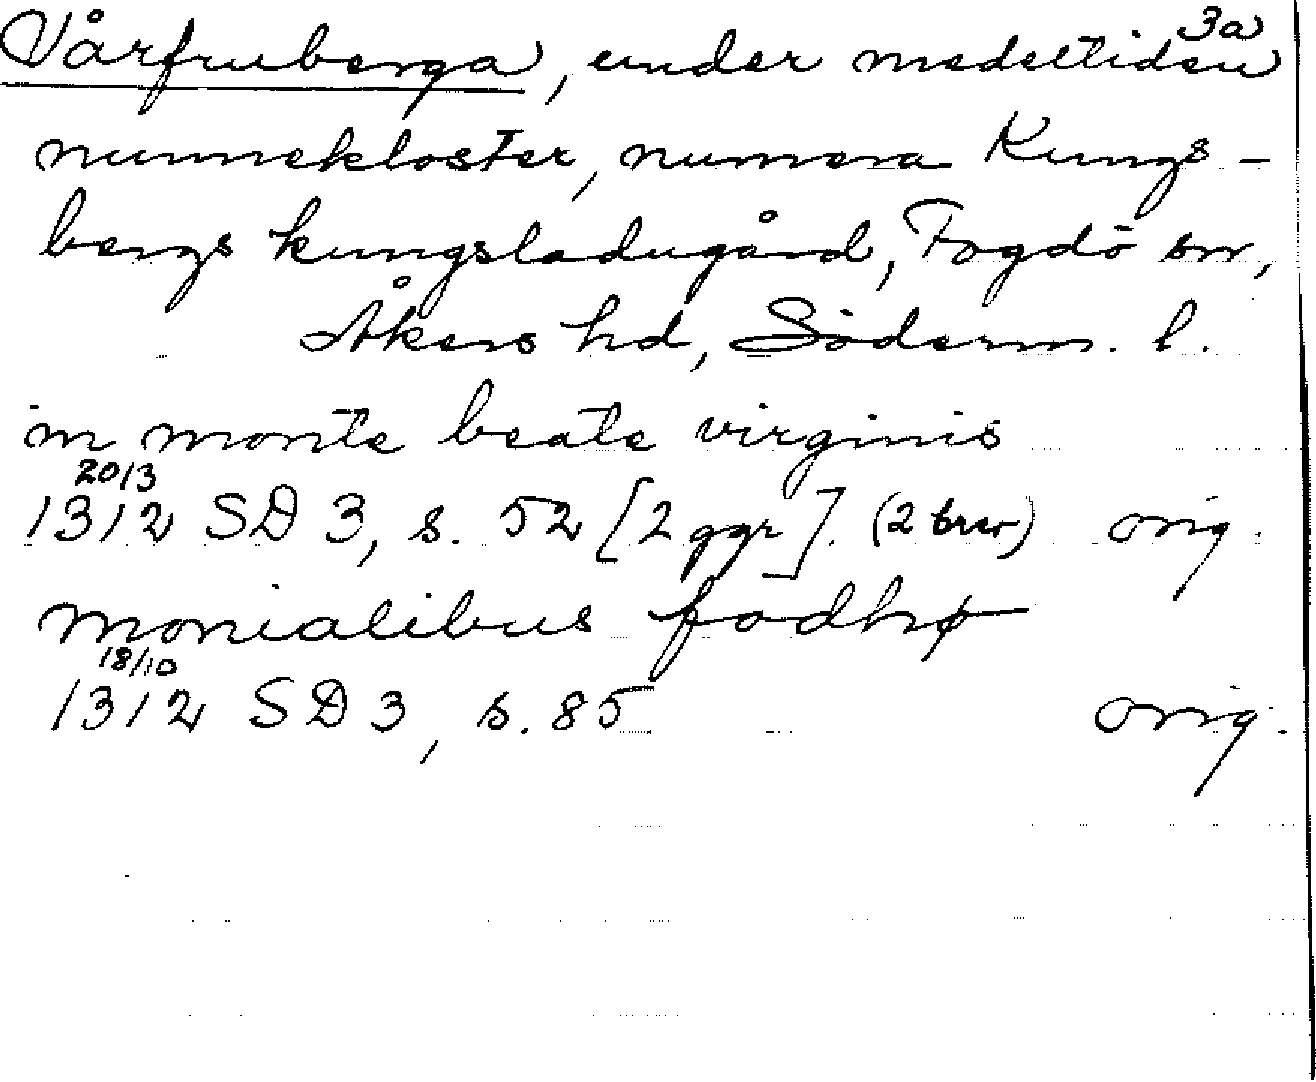 3a
Vårfruberga, under medeltiden
nunnekloster, numera Kungs-
bergs kungsladugård, Fogdö sn,
Åkers hd, Söderm. l.
in monte beate virginis
20/3
1312 SD 3, s. 52 [2 ggr]. (2 brev) orig.
monialibus fodhø
18/10
1312 SD 3, s. 85 orig.